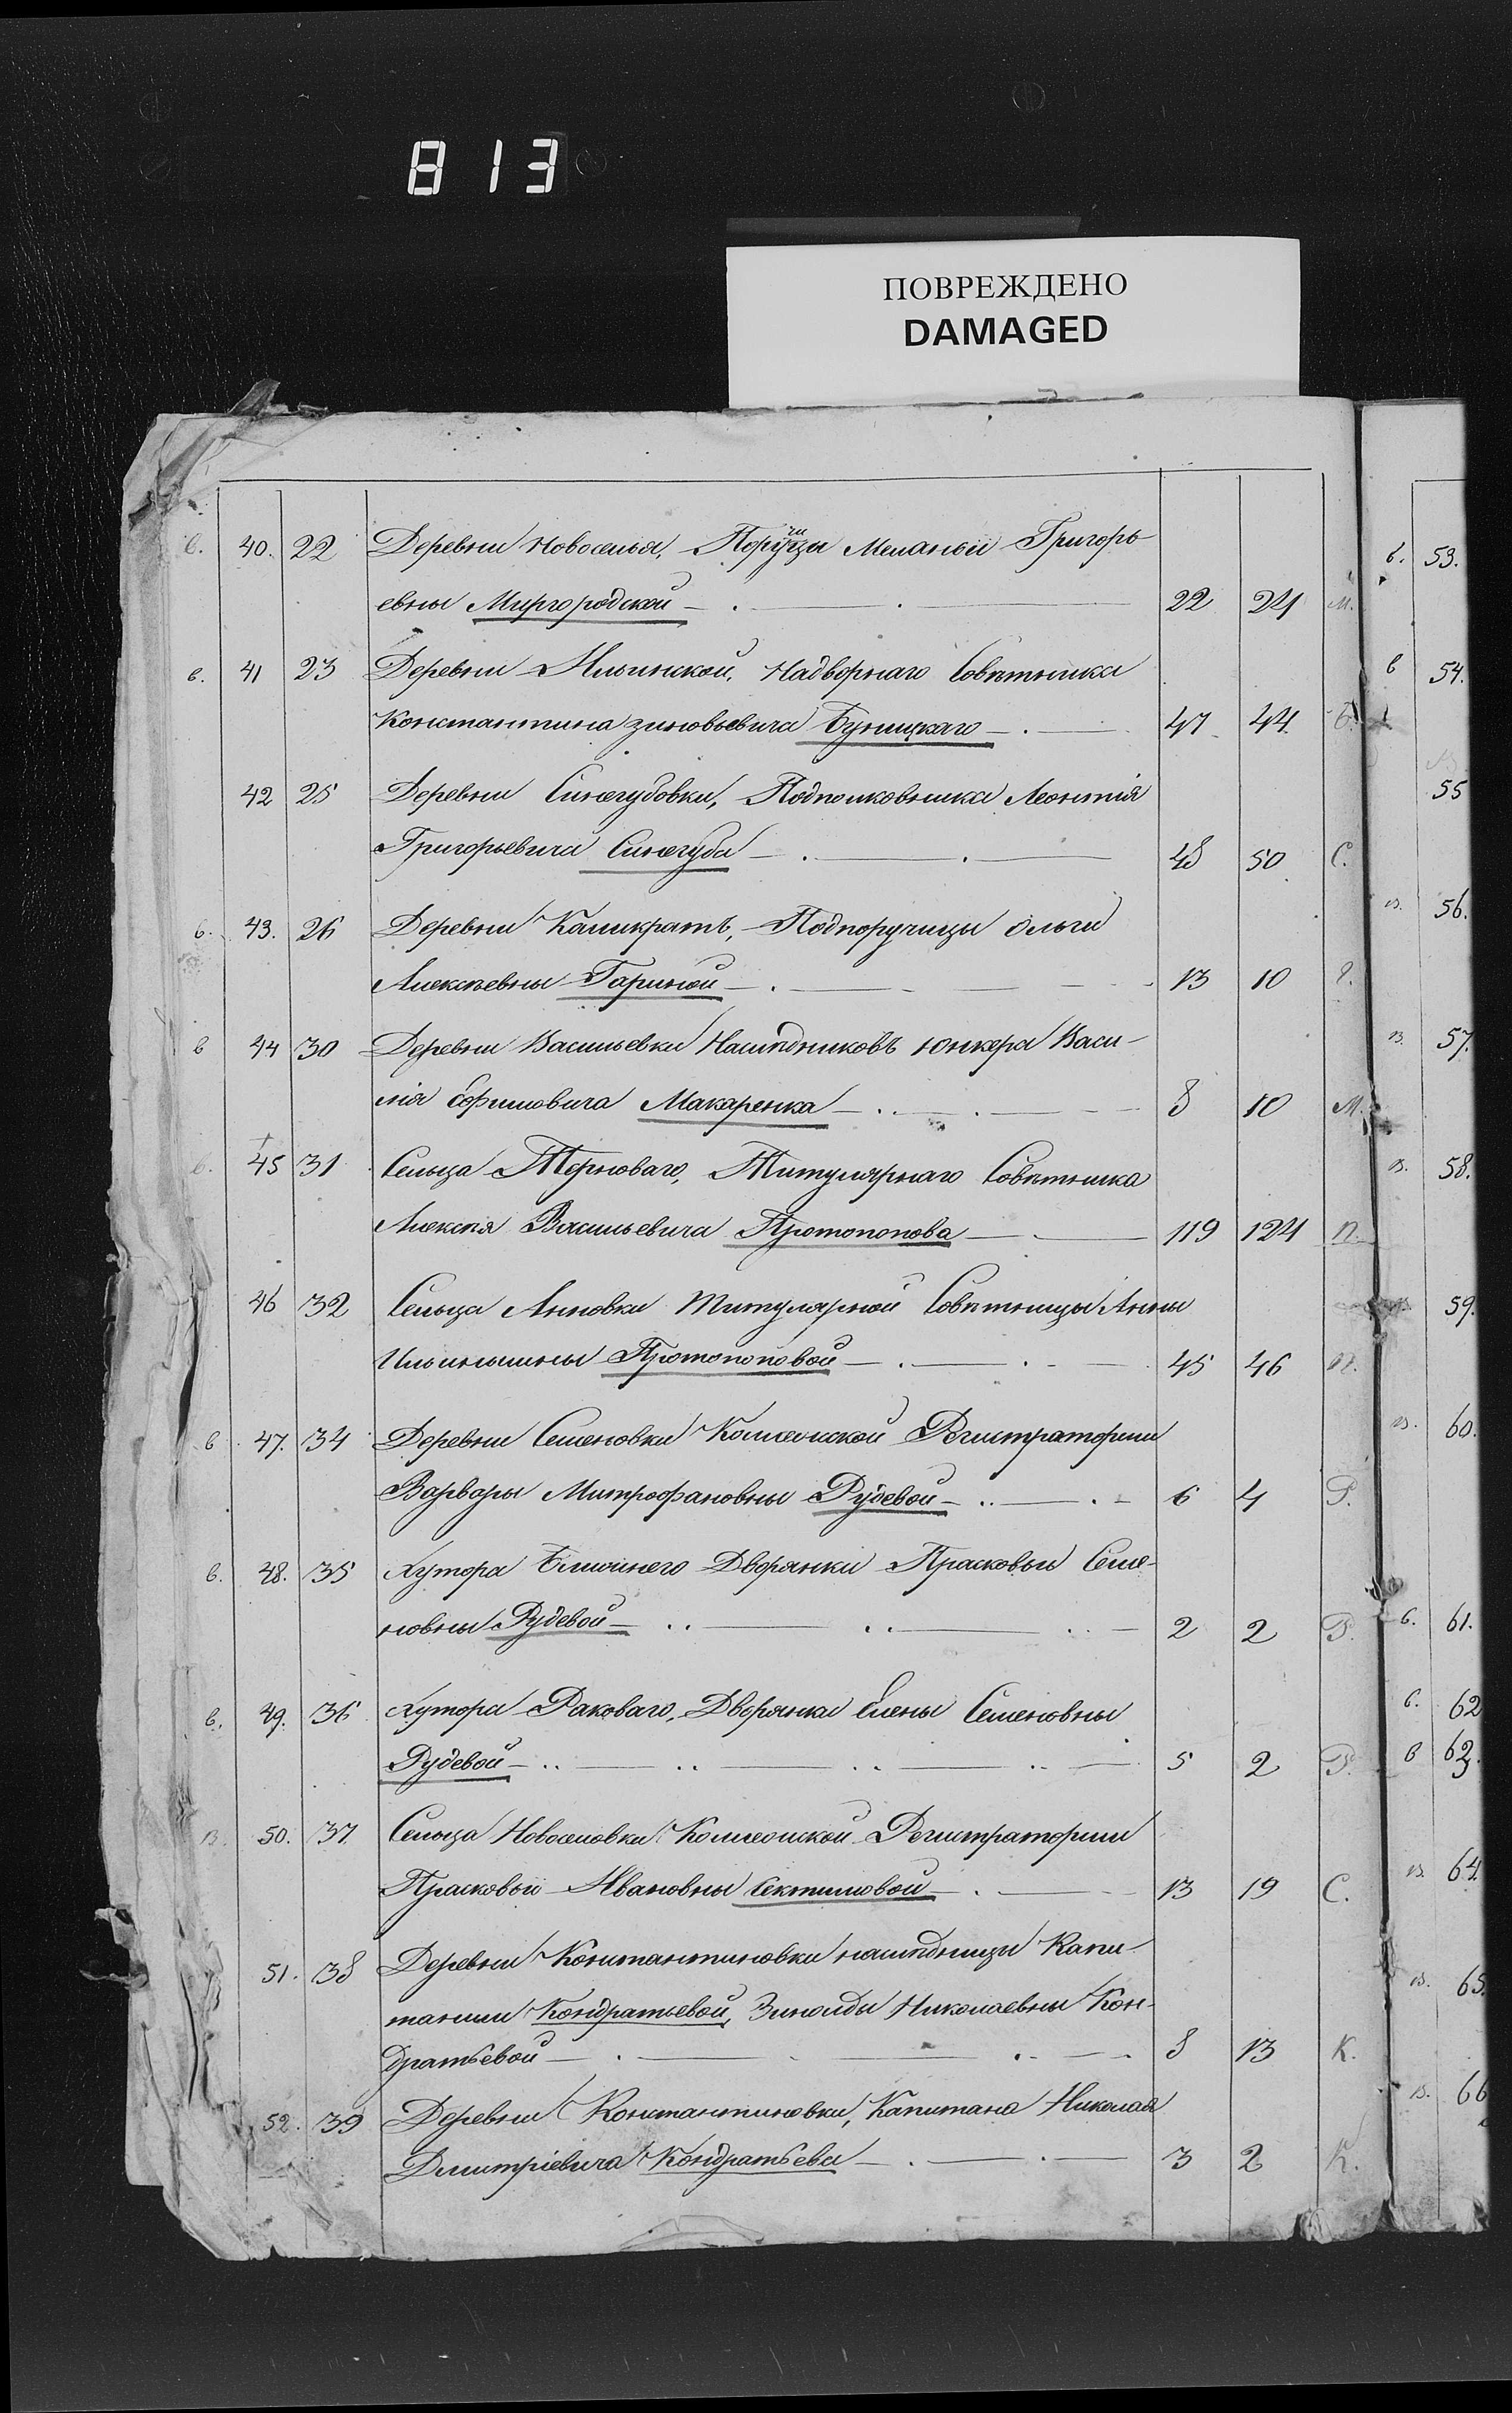 813
ПОВРЕЖДЕНО
DAMAGED
в. 40. 22 Деревни Новоселья, Поручицы Меланьи Григорь-
евны Миргородской 22 24 М.
в. 41 23 Деревни Ильинской, Надворнаго Совѣтника
Константина Зиновьевича Буницкаго 47 44 Б.
42 25 Деревни Синегубовки, Подполковника Леонтія
Григорьевича Синегуба 48 50 С.
в. 43. 26 Деревни Каликратъ, Подпоручицы Ольги
Алексѣевны Гариной 13 10
в 44 30 Деревни Васильевки Наслѣдниковъ Юнкера Васи-
лія Ефимовича Макаренка 8 10 М.
в. 45 31 Сельца Терноваго, Титулярнаго Совѣтника
Алексѣя Васильевича Протопопова 119 124 П.
46 32 Сельца Анновки Титулярной Совѣтницы Анны
Ильинишны Протопоповой 45 46 П.
в 47. 34 Деревни Семеновки Коллежской Регистраторши
Варвары Митрофановны Рудевой 6 4 Р.
в. 48. 35 Хутора Ближняго Дворянки Прасковьи Семе-
новны Рудевой 2 2 Р.
в. 49. 36 Хутора Раковаго, Дворянки Елены Семеновны
Рудевой 5 2 Р.
в. 50. 37. Сельца Новоселовки Коллежской Регистраторши
Прасковьи Ивановны Сектиловой 13 19 С.
51. 38 Деревни Константиновки наслѣдницы Капи-
танши Кондратьевой, Зинаиды Николаевны Кон-
дратьевой 8 13 К.
52. 39 Деревни Константиновки, Капитана Николая
Дмитріевича Кондратьева 3 2 К.
в. 53.
в 54.
55
в. 56.
в. 57.
в. 58.
59.
в. 60.
в. 61.
в. 62
в 63.
в. 64.
в. 65.
в. 66